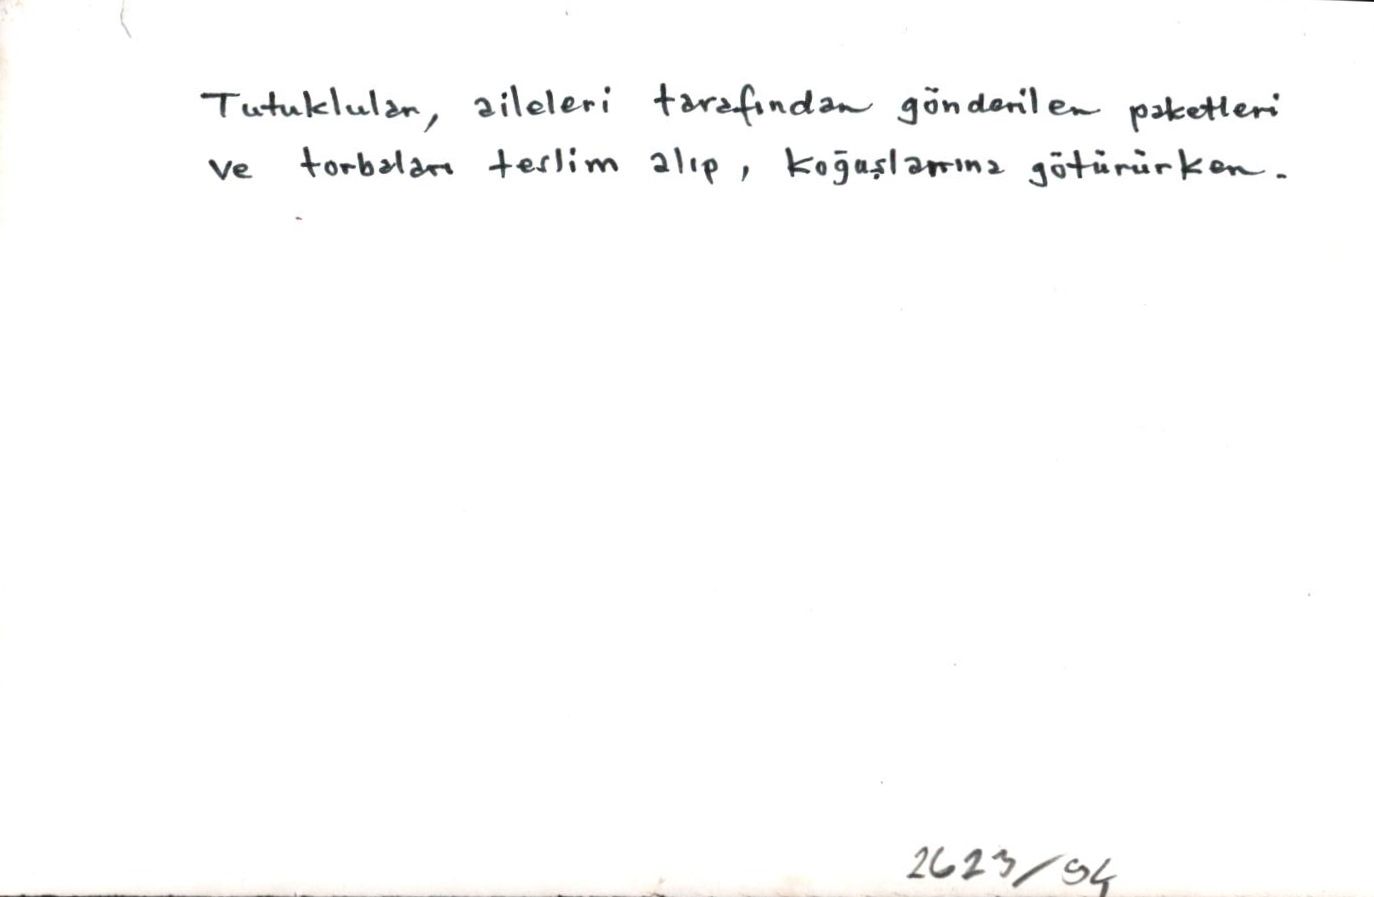 Tutuklular, aileleri tarafından gönderilen paketleri
ve torbaları teslim alıp, koğuşlarına götürürken.
2623/94